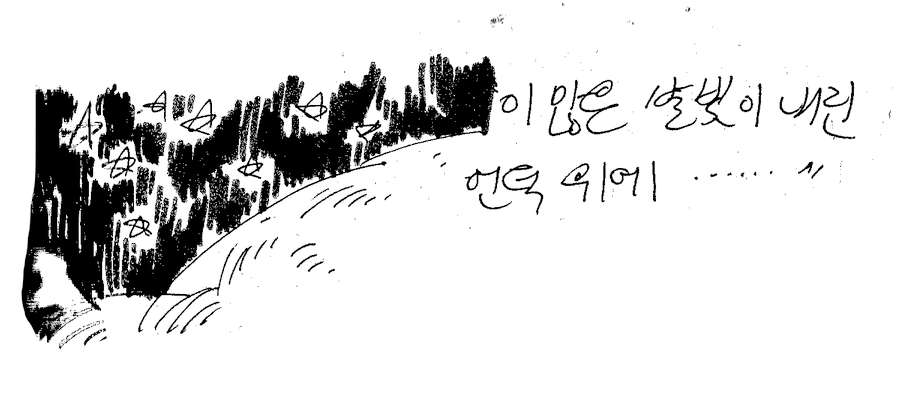 이 많은 별빛이 내린
언덕 위에 ······ "